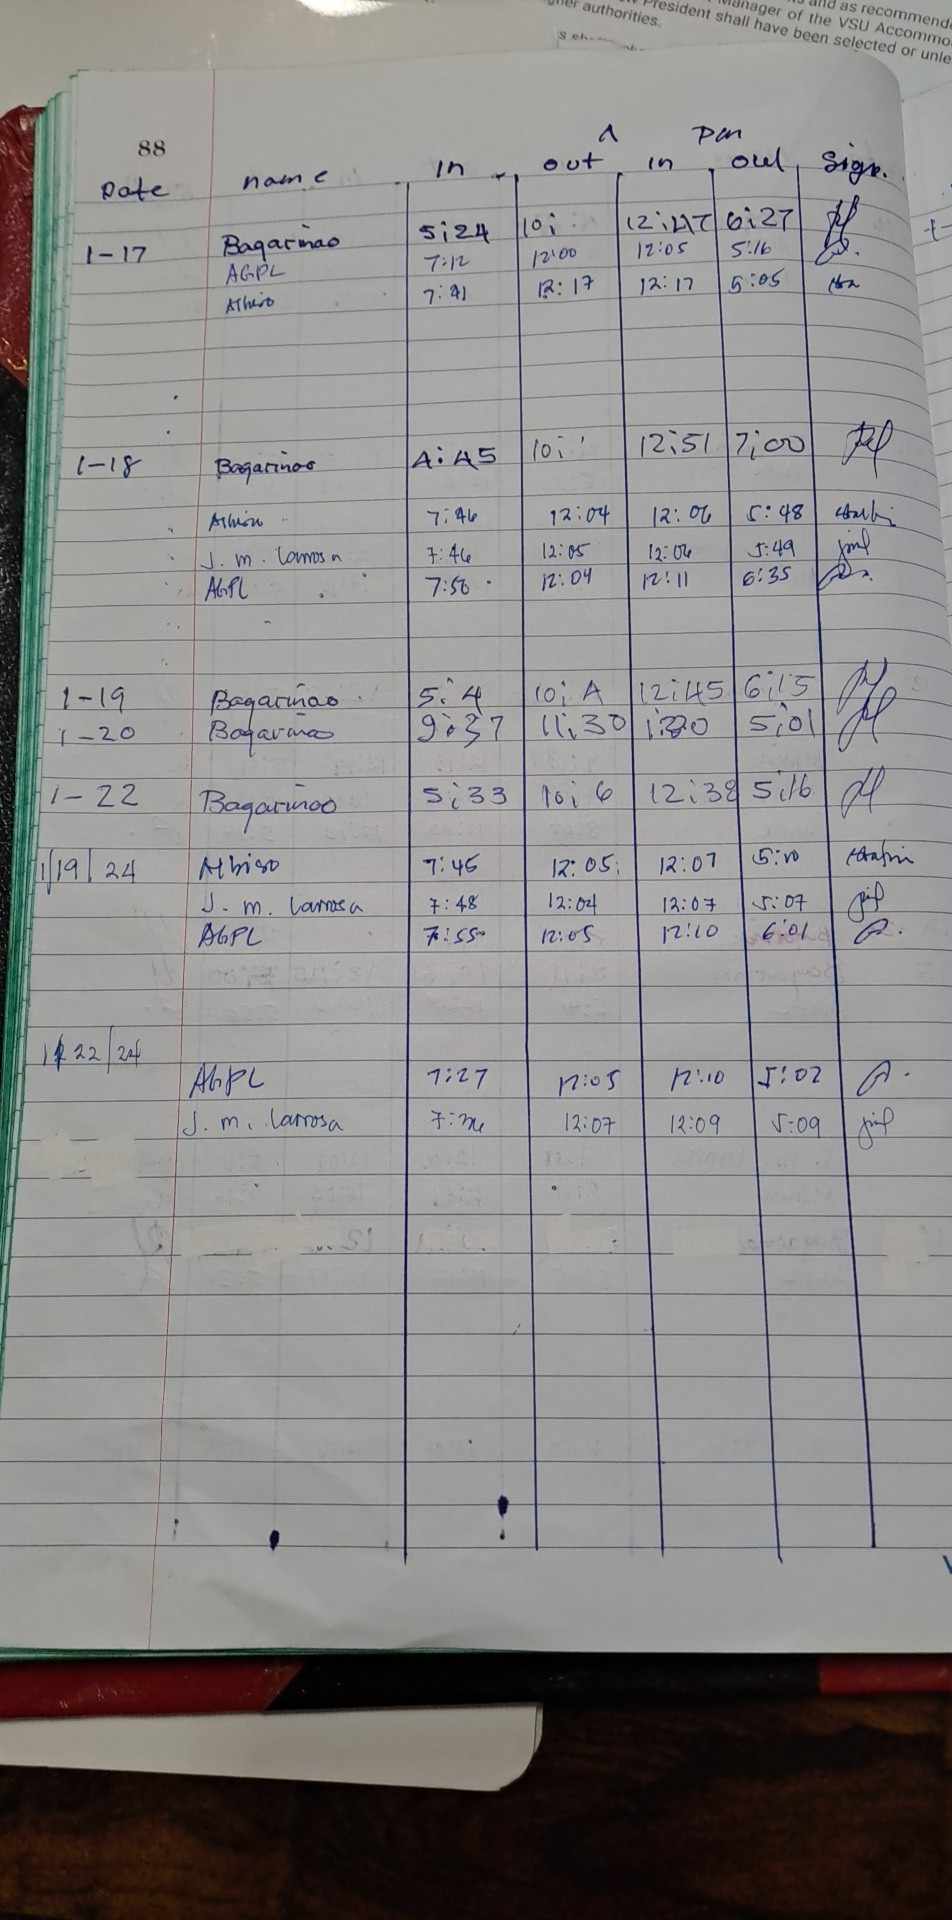 and as recommend
Manager of the VSU Accommo
President shall have been selected or unle
gher authorities.
88
A pm
Date name In out in out Sign.
1-17 Bagarinao 5:24 10: 12:47 6:27
AGPL 7:12 12:00 12:05 5:16
Albiso 7:41 12:17 12:17 5:05
1-18 Bagarinao 4:45 10: 12:51 7:00
Albiso 7:46 12:04 12:06 5:48
J. m. Larrosa 7:46 12:05 12:06 5:49
AGPL 7:50 12:04 12:11 6:35
1-19 Bagarinao 5:4 10:4 12:45 6:15
1-20 Bagarinao 9:37 11:30 5:01
1-22 Bagarinao 5:33 10:6 12:38 5:16
1/19/24 Albiso 7:45 12:05 12:07 5:10
J. m. Larrosa 7:48 12:04 12:07 5:07
AGPL 7:55 12:05 12:10 6:01
1/22/24
AGPL 7:27 12:05 12:10 5:02
J. m. Larrosa 7:36 12:07 12:09 5:09